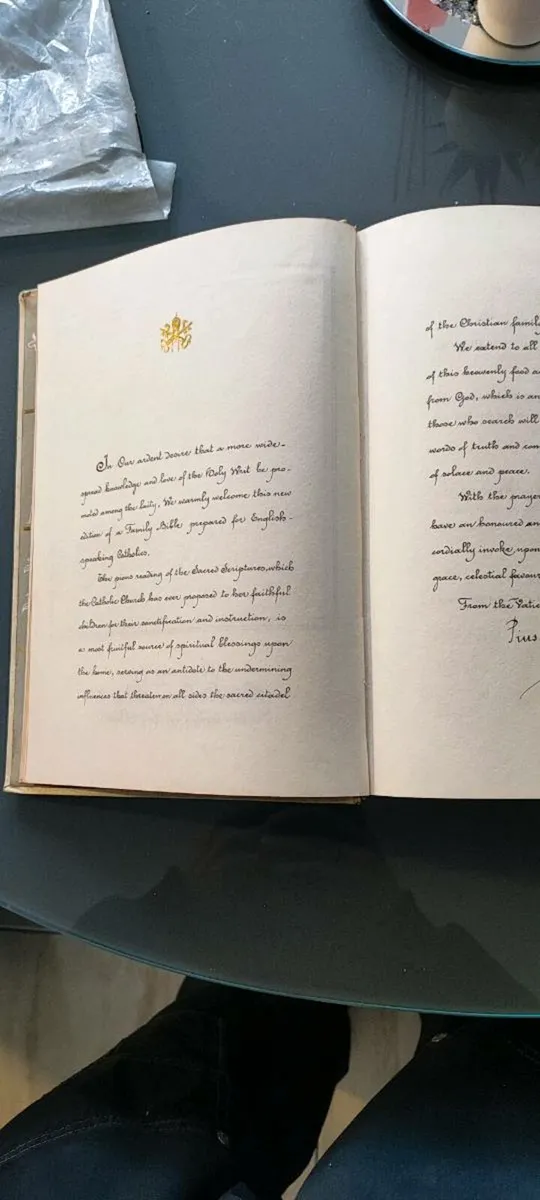 In Our ardent desire that a more wide-
spread knowledge and love of the Holy Writ be pro-
moted among the laity, We warmly welcome this new
edition of a Family Bible prepared for English-
speaking Catholics.
The pious reading of the Sacred Scriptures, which
the Catholic Church has ever proposed to her faithful
children for their sanctification and instruction, is
a most fruitful source of spiritual blessings upon
the home, serving as an antidote to the undermining
influences that threaten on all sides the sacred citadel
of the Christian family
We extend to all
of this heavenly food a
from God, which is an
those who search will
words of truth and con
of solace and peace.
With the prayer
have an honoured an
cordially invoke upon
grace, celestial favour
From the Vatic
Pius